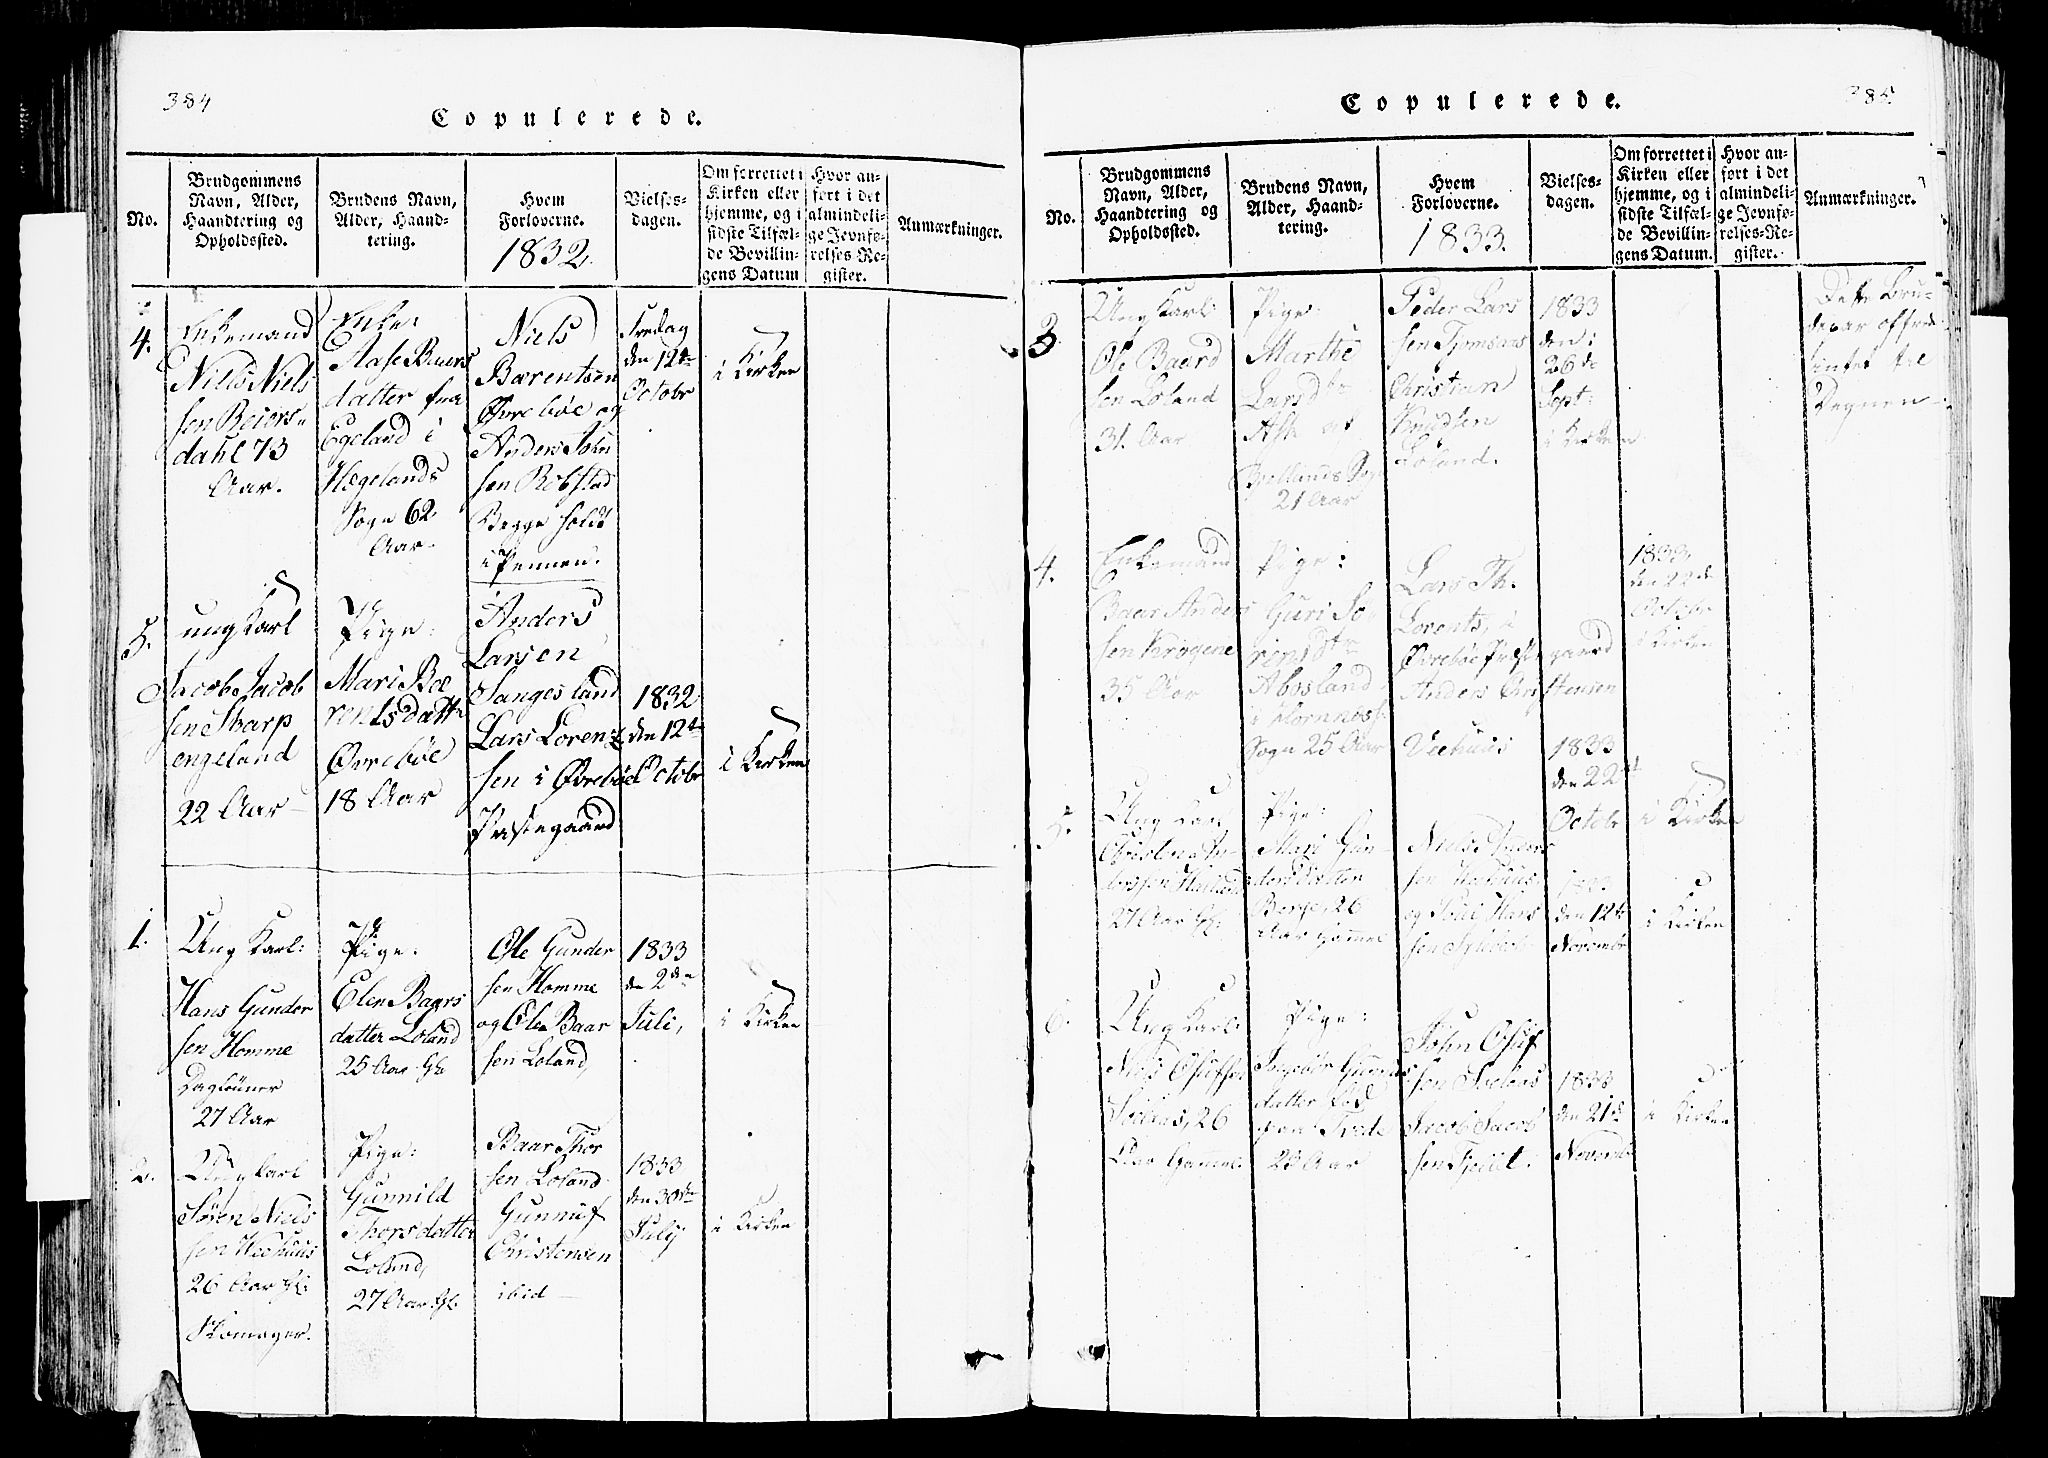 384
Copulerede.
No.
Brudgommens
Navn, Alder,
Haandtering og
Opholdssted.
Brudens Navn,
Alder, Haand-
tering.
Hvem
Forloverne.
1832.
Vielses-
dagen.
Om forrettet i
Kirken eller
hjemme, og i
sidste Tilfæl-
de Bevillin-
gens Datum
Hvor an-
ført i det
almindeli-
ge Jevnfø-
relses-Re-
gister.
Anmærkninger.
4.
Enkemand
Niels Niels
sen Beiers-
dahl 73
Aar.
Enke:
Aase Baars
datter fra
Egeland i
Hægelands
Sogn 62
Aar.
Niels
Barentsen
Øvrebøe og
Anders John
sen Robstad
Begge holdt
i Pennen.
Fredag
den 12te
Octobr
i Kirken
5.
ung Karl
Jacob Jacob
sen Skarp
engeland
22 Aar
Pige:
Mari Bæ
rentsdattr
Øvrebøe
18 Aar
Anders
Larsen
Sangesland
Lars Lorentz
sen i Øvrebøe
Præstegaard
1832
den 12te
Octobr
i Kirken
1.
Ung Karl:
Hans Gunder
sen Homme
Dagleiner
27 Aar
Pige:
Elen Baars
datter Loland
25 Aar Gl:
Ole Gunder
sen Homme
og Ole Baar
sen Loland,
1833
den 2den
Juli,
i Kirken
2.
Ung karl
Søren Niels
sen Veehuus
26 Aar gl:
Skomager.
Pige:
Gunnild
Thorsdatter
Loland,
27 Aar Gl:
Baar Thor
sen Loland
Gunnuf
Christensen
ibid
1833
den 30de
July
i Kirken
385
Copulerede.
No.
Brudgommens
Navn, Alder,
Haandtering og
Opholdssted.
Brudens Navn,
Alder, Haand-
tering.
Hvem
Forloverne.
1833.
Vielses-
dagen.
Om forrettet i
Kirken eller
hjemme, og i
sidste Tilfæl-
de Bevillin-
gens Datum.
Hvor an-
ført i det
almindeli-
ge Jevnfø-
relses-Re-
gister.
Anmærkninger.
3
Ung Karl:
Ole Baard
sen Loland
31. Aar
Pige:
Marthe
Larsdtr
Ask af
21 Aar
Peder Lars
sen
Christian
Knudsen
Loland.
1833
den:
26de
Sept:
i Kirken
Dette Bru-
depar offred
intet til
Degnen
4.
Enkemand
Baar Anders
sen Krogene
35 Aar
Pige:
Guri Sø
rensdtr
Abosland
i Hornnes
Sogn 25 Aar
Lars Th.
Lorents, i
Øvrebøe Præstegaard
Anders Christensen
Veehuus
1833.
den 22de
Octobr
i Kirken
5.
Ung Karl
27 Aar gl:
Pige:
Mari Gun-
dersdatter
Berge, 26
Aar gamel
Niels Anders
sen Veehuus
og
1833
den 22de
Octobr
i Kirken
1833
den 12te
Novembr
i Kirken
6.
Ung Karl:
Niels Osufsen
26
Aar Gammel.
Pige:
Ingebor Gunders
datter fød
paa
23 Aar
John Osuf
sen
Jacob Jacob
sen
1833
den 21de
Novembr
i Kirken